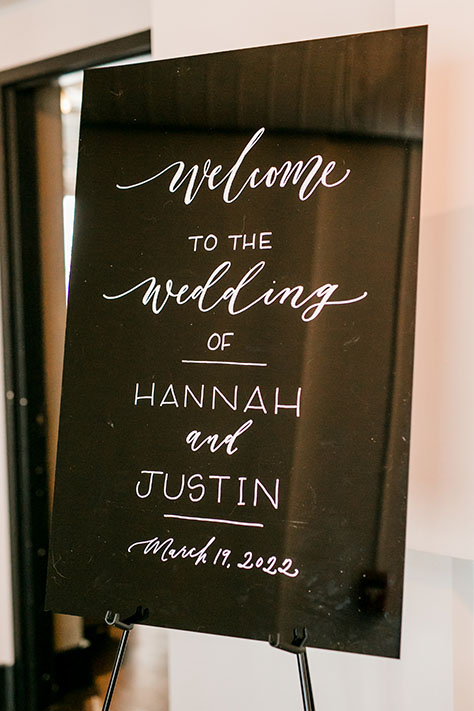 welcome
TO THE
wedding
OF
HANNAH
and
JUSTIN
March 19, 2022